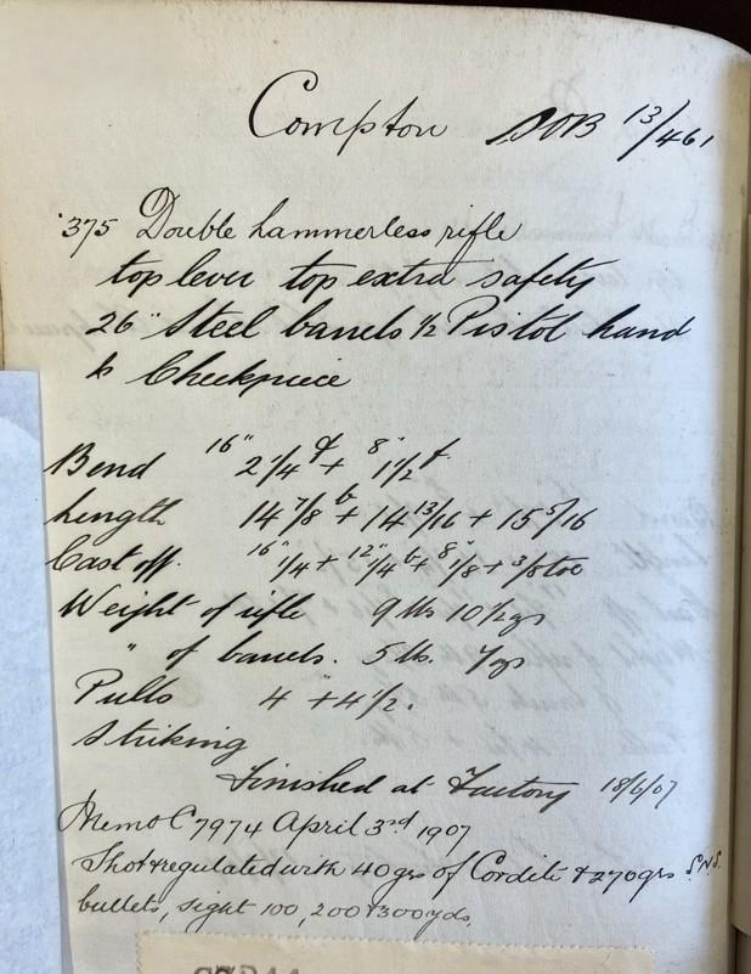 Compton DOB 13/461
.375 Double hammerless rifle
top lever top extra safety
26" Steel barrels 1/2 Pistol hand
& Cheekpiece
Bend 16" 2 1/4 + 8" 1 1/2
Length 14 7/8 + 14 13/16 + 15 5/16
Cast off. 16" 1/4 + 12" 1/4 + 8" 1/8 + 3/8 toe
Weight of rifle 9 lbs 10 1/2 ozs
" of barrels. 5 lb. 7 ozs
Pulls 4 + 4 1/2.
Striking
Finished at Factory 18/6/07
Memo C 7974 April 3rd 1907
Shot & regulated with 40 grs of Cordite & 270 grs S.N.S.
bullets, sight 100, 200 & 300 yds.